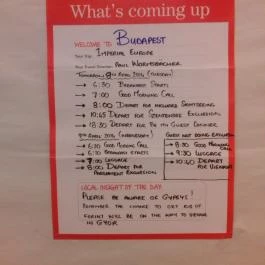 What's coming up
WELCOME TO BUDAPEST
Your Trip: IMPERIAL EUROPE
Your Travel Director: PAUL
TOMORROW 8TH APRIL 2014 (TUESDAY)
→ 6:30 BREAKFAST STARTS
→ 7:00 GOOD MORNING CALL
→ 8:00 DEPART FOR INCLUDED SIGHTSEEING
→ 10:45 DEPART FOR SZENTENDRE EXCURSION
→ 18:30 DEPART FOR BE MY GUEST DINNER
9TH APRIL 2014 (WEDNESDAY)
→ 6:30 GOOD MORNING CALL
→ 6:30 BREAKFAST STARTS
→ 7:00 LUGGAGE
→ 8:00 DEPART FOR
PARLIAMENT EXCURSION
GUEST NOT DOING EXCURSION
→ 8:00 GOOD MORNING
CALL
→ 9:30 LUGGAGE
→ 10:40 DEPART
FOR VIENNA
LOCAL INSIGHT OF THE DAY
PLEASE BE AWARE OF GYPSYS!
REMEMBER THE CHANCE TO GET RID OF
FORINT WILL BE ON THE WAY TO VIENNA
IN GYOR